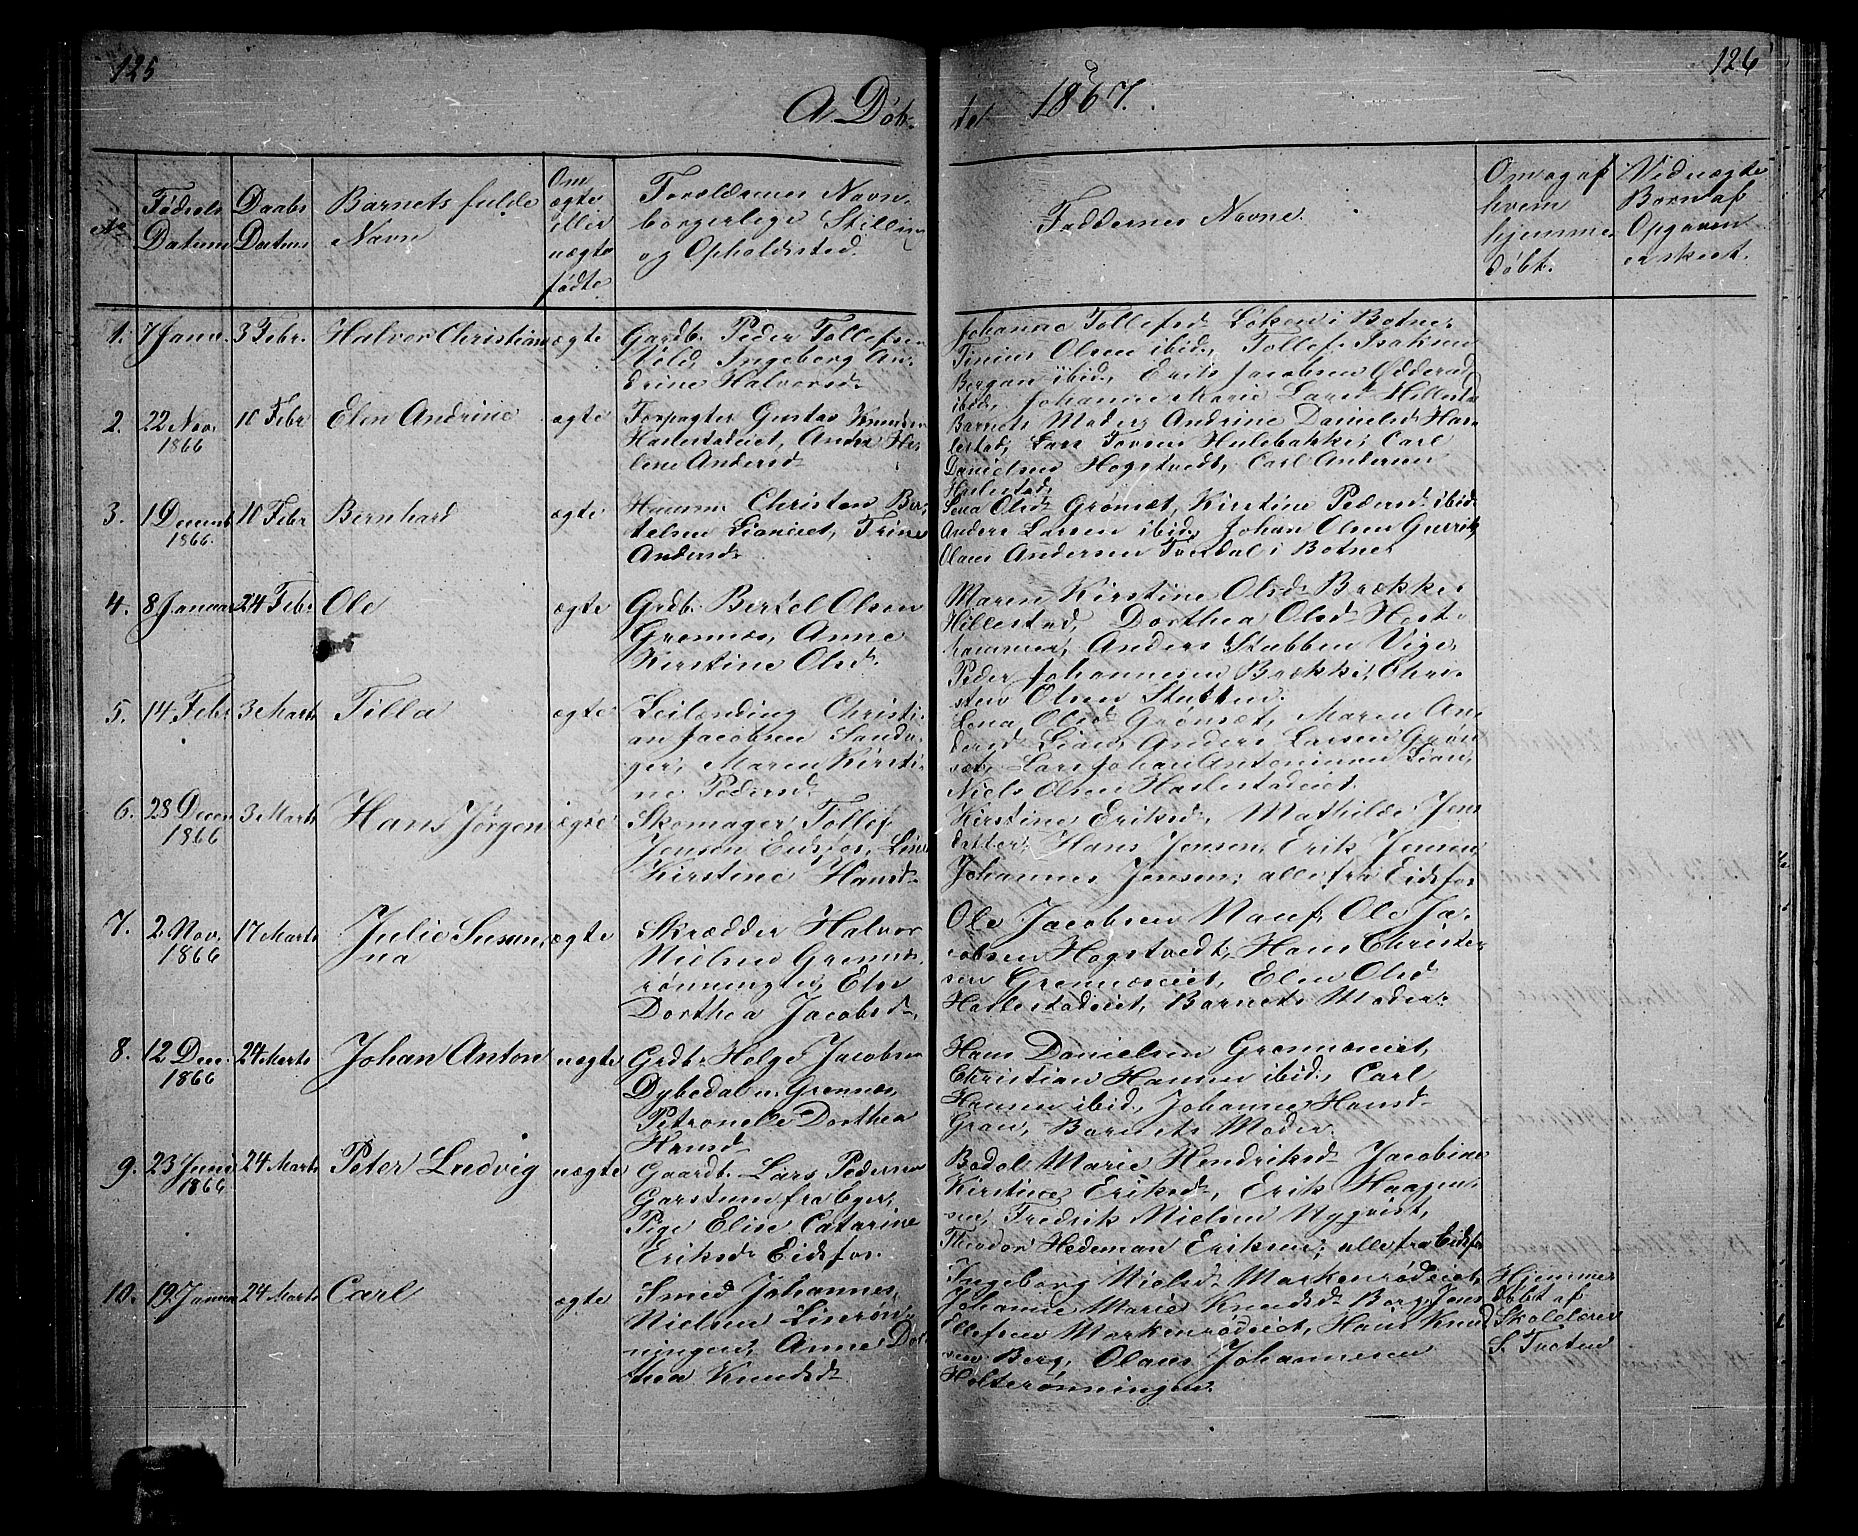 125
126
A Døb-
te 1867.
No
Fødsels Datum
Daabs Datum
Barnets fulde Navn
Om ægte eller uægte født
Forældrenes Navn
borgerlige Stilling
og Opholdsted.
Faddernes Navne.
Om og af hvem hjemme døbt.
Ved uægte Børn af Opgaven er skeet.
1. 7 Janv. 3 Febr. Halvor Christian ægte
Gardb. Peder Tollefsen
Vold, Ingeborg An-
drine Halvorsd
Johanne Tollefsd Løken i Botne,
Tinius Olsen ibid, Tollef Isaksen
Bergan ibid, Erik Jacobsen Odderud
ibid, Johanne Marie Larsd Hillestad
2. 22 Nov. 1866 10 Febr Elen Andrine ægte
Forpagter Gustav Knudsen
Haslestadeiet, Andrea He-
lene Andersd
Barnets Moder, Andrine Danielsd Has-
lestad, Lars Hulebakke, Carl
Danielsen Hogstvedt, Carl Andersen
Haslestad
3. 1 Decemb 1866. 10 Febr Bernhard ægte
Huusm. Christen Ber-
telsen Lianeiet, Trine
Andersd
Lena Olsd Grønsæt, Kirstine Pedersd ibid
Anders Larsen ibid, Johan Olsen
Olaus Andersen i Botne
4. 8 Januar 24 Febr Ole ægte
Grdb. Bertel Olsen
Grennes, Anne
Kirstine Olsd.
Maren Kirstine Olsd Brække
Hillestad, Dorthea Olsd Hest-
hammer, Anders Stubben Vige,
Peder Johannesen Brække, Chri-
sten Olsen
5. 14 Febr 3 Marts Tilla ægte
Leilænding Christi-
an Jacobsen Sanda-
ger, Maren Kirsti-
ne Pedersd
Lena Olsd Grønsæt, Maren An-
dersd Lian, Anders Larsen Grøn-
sæt, Lars Johan Antoniusen Lian,
Niels Olsen Haslestadeiet
6. 28 Decem 1866 3 Marts Hans Jørgen ægte
Skomager Tollef
Jensen Eidsfos, Line
Kirstine Hansd
Kirstine Eriksd, Mathilde Jens-
datter, Hans Jensen, Erik Jensen,
Johannes Jensen; alle fra Eidsfos
7. 2 Nov. 1866 17 Marts Julie Susan-
na ægte
Skrædder Halvor
Nielsen Grennes-
rønningen, Else
Dorthea Jacobsd
Ole Jacobsen Nauf, Ole Ja-
cobsen Hogstvedt, Hans Christen-
sen Grenneseiet, Elen Olsd
Haslestadeiet, Barnets Moder.
8. 12 Dec. 1866 24 Marts Johan Anton uægte
Grdbr Helge Jacobsen
Dybedal u. Grennes,
Petronelle Dorthea
Hansd
Hans Danielsen Grenneseiet,
Christian Hansen ibid, Carl
Hansen ibid, Johanne Hansd
Gran, Barnets Moder.
9. 23 Juni 1866 24 Marts Peter Ludvig uægte
Gaardb. Lars Pedersen
Garstum fra Eger,
Pige Elise Catarine
Eriksd Eidsfos.
Bodol Marie Hendriksd Jacobine
Kirstine Eriksd, Erik Haagen-
sen, Fredrik Nielsen Nyqvist,
Theodor Hedeman Eriksen; alle fra Eidsfos
10. 19 Januar 24 Marts Carl ægte
Smed Johannes
Nielsen Linrøn-
ningen, Anne Dor-
thea Knudsd
Ingeborg Nielsd Markenrødeiet,
Johanne Marie Knudsd Berg, Jens
Ellefsen Markenrødeiet, Hans Knud-
sen Berg, Olaus Johannesen
Holterønningen
Hjemme
døbt af
Skolelærer
S. Tveten